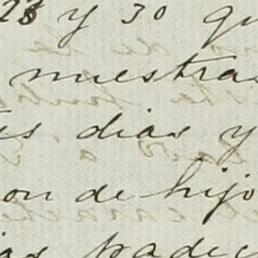 28 y 30 qu
muestras
es dias y
on de hijo
ias padec